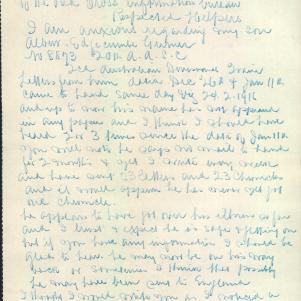 To the Red Cross Information Bureau
Respected Helpers
I am anxious regarding my son
Albert Edgecumbe
No 8873 A.A.S.C
2nd Australian Train
Letters from him dated Dec 26th & Jan 11th
came to hand same day 24th 2. 1916
and up to now his name has not appeared
in any papers and I think I should have
heard 2 or 3 times since the date of Jan 11th
You will note he says no mail to hand
for 2 months & yet I write every week
and have sent 23 letters and 23 Chronicles
and it would appear he has never yet got
one Chronicle.
he appears to have got over his illness so far
and I trust & expect he is safe & getting on
but if you have any information I should be
glad to hear. he may now be on his way
back or sometimes I think that possibly
he may have been sent to England
I thought I would write you as I noticed in